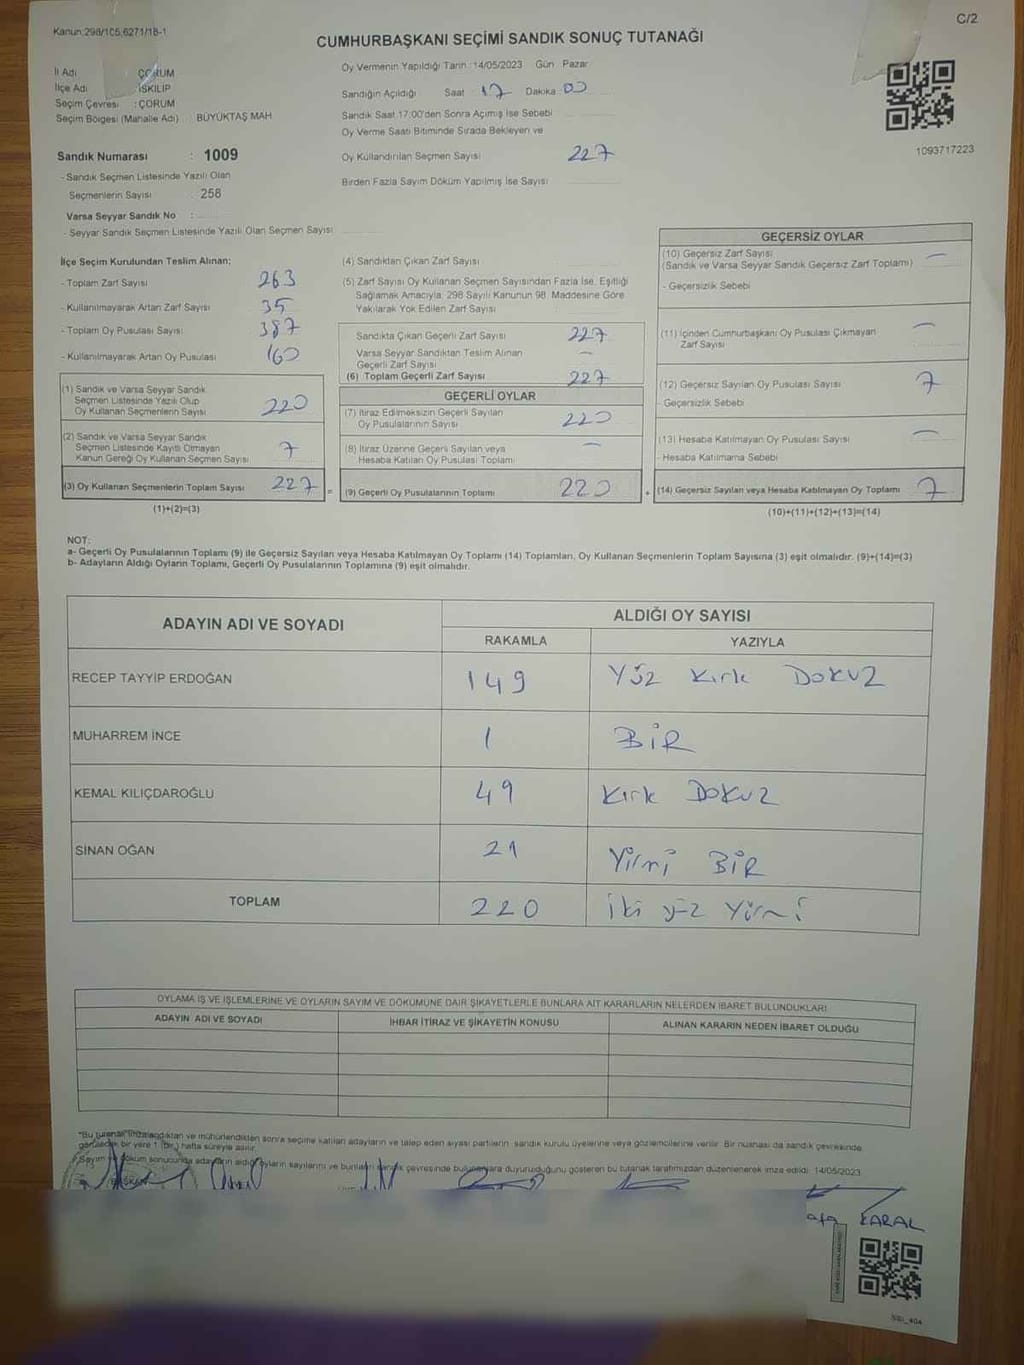 Kanun:298/105,6271/18-1
C/2
CUMHURBAŞKANI SEÇİMİ SANDIK SONUÇ TUTANAĞI
İl Adı ÇORUM
İlçe Adı İSKİLİP
Seçim Çevresi : ÇORUM
Seçim Bölgesi (Mahalle Adı) : BÜYÜKTAŞ MAH
Sandık Numarası : 1009
- Sandık Seçmen Listesinde Yazılı Olan
Seçmenlerin Sayısı : 258
Varsa Seyyar Sandık No :
- Seyyar Sandık Seçmen Listesinde Yazılı Olan Seçmen Sayısı
Oy Vermenin Yapıldığı Tarih : 14/05/2023 Gün Pazar
Sandığın Açıldığı Saat 17 Dakika 00
Sandık Saat 17:00'den Sonra Açılmış İse Sebebi
Oy Verme Saati Bitiminde Sırada Bekleyen ve
Oy Kullandırılan Seçmen Sayısı 227
Birden Fazla Sayım Döküm Yapılmış İse Sayısı
1093717223
İlçe Seçim Kurulundan Teslim Alınan;
- Toplam Zarf Sayısı 263
- Kullanılmayarak Artan Zarf Sayısı 35
- Toplam Oy Pusulası Sayısı 387
- Kullanılmayarak Artan Oy Pusulası 160
(1) Sandık ve Varsa Seyyar Sandık
Seçmen Listesinde Yazılı Olup
Oy Kullanan Seçmenlerin Sayısı 220
(2) Sandık ve Varsa Seyyar Sandık
Seçmen Listesinde Kayıtlı Olmayan
Kanun Gereği Oy Kullanan Seçmen Sayısı 7
(3) Oy Kullanan Seçmenlerin Toplam Sayısı 227 =
(1)+(2)=(3)
(4) Sandıktan Çıkan Zarf Sayısı
(5) Zarf Sayısı Oy Kullanan Seçmen Sayısından Fazla İse, Eşitliği
Sağlamak Amacıyla, 298 Sayılı Kanunun 98. Maddesine Göre
Yakılarak Yok Edilen Zarf Sayısı
Sandıkta Çıkan Geçerli Zarf Sayısı 227
Varsa Seyyar Sandıktan Teslim Alınan
Geçerli Zarf Sayısı –
(6) Toplam Geçerli Zarf Sayısı 227
GEÇERLİ OYLAR
(7) İtiraz Edilmeksizin Geçerli Sayılan
Oy Pusulalarının Sayısı 220
(8) İtiraz Üzerine Geçerli Sayılan veya
Hesaba Katılan Oy Pusulası Toplamı –
(9) Geçerli Oy Pusulalarının Toplamı 220 +
GEÇERSİZ OYLAR
(10) Geçersiz Zarf Sayısı –
(Sandık ve Varsa Seyyar Sandık Geçersiz Zarf Toplamı)
- Geçersizlik Sebebi
(11) İçinden Cumhurbaşkanı Oy Pusulası Çıkmayan
Zarf Sayısı –
(12) Geçersiz Sayılan Oy Pusulası Sayısı 7
- Geçersizlik Sebebi
(13) Hesaba Katılmayan Oy Pusulası Sayısı –
- Hesaba Katılmama Sebebi
(14) Geçersiz Sayılan veya Hesaba Katılmayan Oy Toplamı 7
(10)+(11)+(12)+(13)=(14)
NOT:
a- Geçerli Oy Pusulalarının Toplamı (9) ile Geçersiz Sayılan veya Hesaba Katılmayan Oy Toplamı (14) Toplamları, Oy Kullanan Seçmenlerin Toplam Sayısına (3) eşit olmalıdır. (9)+(14)=(3)
b- Adayların Aldığı Oyların Toplamı, Geçerli Oy Pusulalarının Toplamına (9) eşit olmalıdır.
ADAYIN ADI VE SOYADI
ALDIĞI OY SAYISI
RAKAMLA YAZIYLA
RECEP TAYYİP ERDOĞAN 149 Yüz Kırk Dokuz
MUHARREM İNCE 1 BİR
KEMAL KILIÇDAROĞLU 49 Kırk Dokuz
SİNAN OĞAN 21 Yirmi BİR
TOPLAM 220 İki yüz Yirmi
OYLAMA İŞ VE İŞLEMLERİNE VE OYLARIN SAYIM VE DÖKÜMÜNE DAİR ŞİKAYETLERLE BUNLARA AİT KARARLARIN NELERDEN İBARET BULUNDUKLARI
ADAYIN ADI VE SOYADI İHBAR İTİRAZ VE ŞİKAYETİN KONUSU ALINAN KARARIN NEDEN İBARET OLDUĞU
"Bu tutanak imzalandıktan ve mühürlendikten sonra seçime katılan adayların ve talep eden siyasi partilerin sandık kurulu üyelerine veya gözlemcilerine verilir. Bir nüshası da sandık çevresinde
görülecek bir yere 1 (bir) hafta süreyle asılır.
Sayım ve döküm sonucunda adayların aldığı oyların sayılarını ve bunların sandık çevresinde bulunanlara duyurulduğunu gösteren bu tutanak tarafımızdan düzenlenerek imza edildi. 14/05/2023
BAŞKAN
KARAL
SSI_404